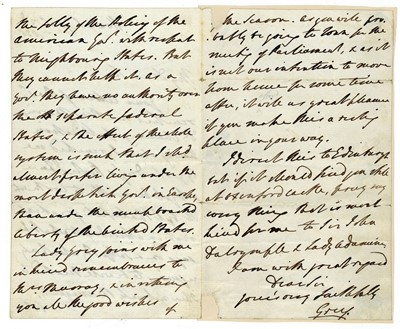 the folly of the Policy of the
American Govt. with respect
to Neighbouring States. But
they cannot help it. as a
Govt. they have no authority over
the separate federal
States, & the effect of the whole
system is such that I shd
almost prefer living under the
most despotick Govt. in Europe,
than under the much boasted
liberty of the United States.
Lady Grey joins with me
in kind remembrances to
Mrs Murray, & in wishing
you all the good wishes
of
the Season. as you will pro-
bably be going to Town for the
meeting of Parliament, & as it
is not our intention to move
from hence for some time
after, it will be a great pleasure
if you make this a resting
place in your way.
I direct this to Edinburgh
but if it should find you still
at Oxenford Castle, pray say
every thing that is most
kind for me to Sir John
Dalrymple & Lady Adamina
I am with great regard
Dear Sir
yours very faithfully
Grey.